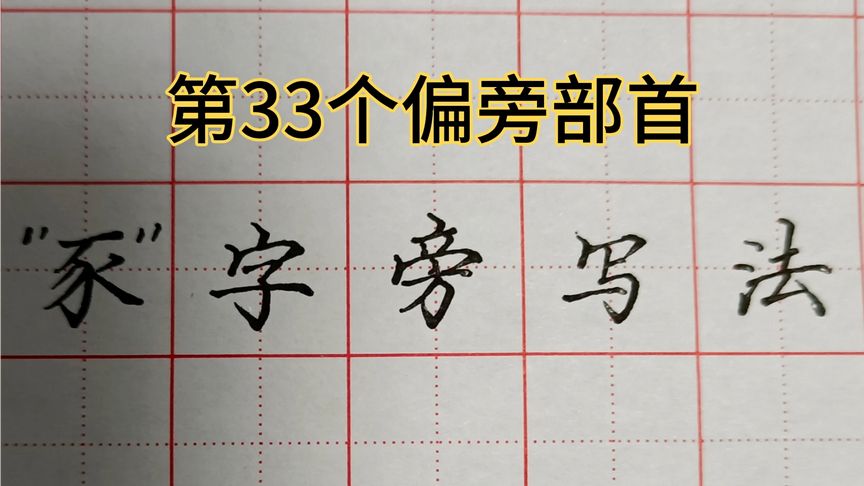 第33个偏旁部首
"豕"字旁写法